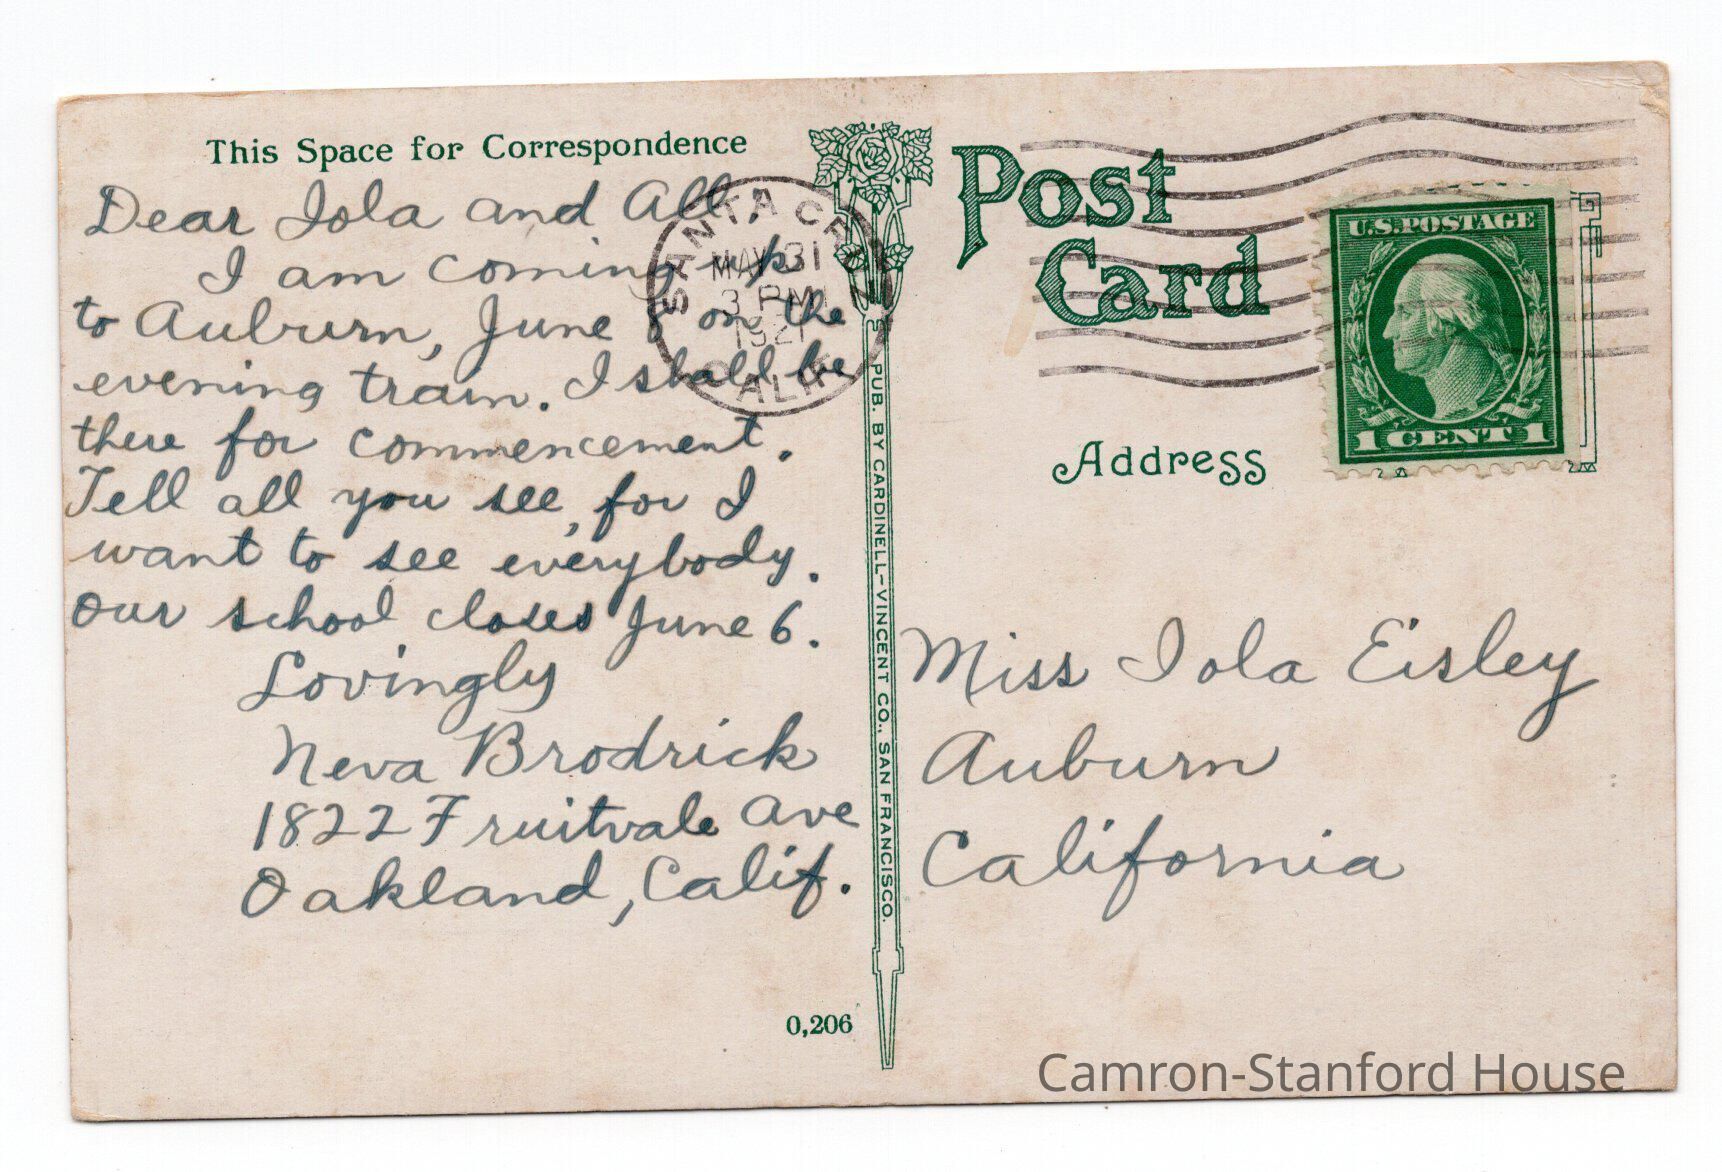 This Space for Correspondence
Dear Iola and All,
I am coming up
to Auburn, June 8 on the
evening train. I shall be
there for commencement.
Tell all you see, for I
want to see everybody.
Our school closes June 6.
Lovingly
Neva Brodrick
1822 Fruitvale Ave
Oakland, Calif.
0,206
SANTA CRUZ
MAY 31
3 PM
1921
CALIF.
PUB. BY CARDINELL-VINCENT CO., SAN FRANCISCO.
Post
Card
U.S. POSTAGE
1 CENT 1
Address
Miss Iola Eisley
Auburn
California
Camron-Stanford House